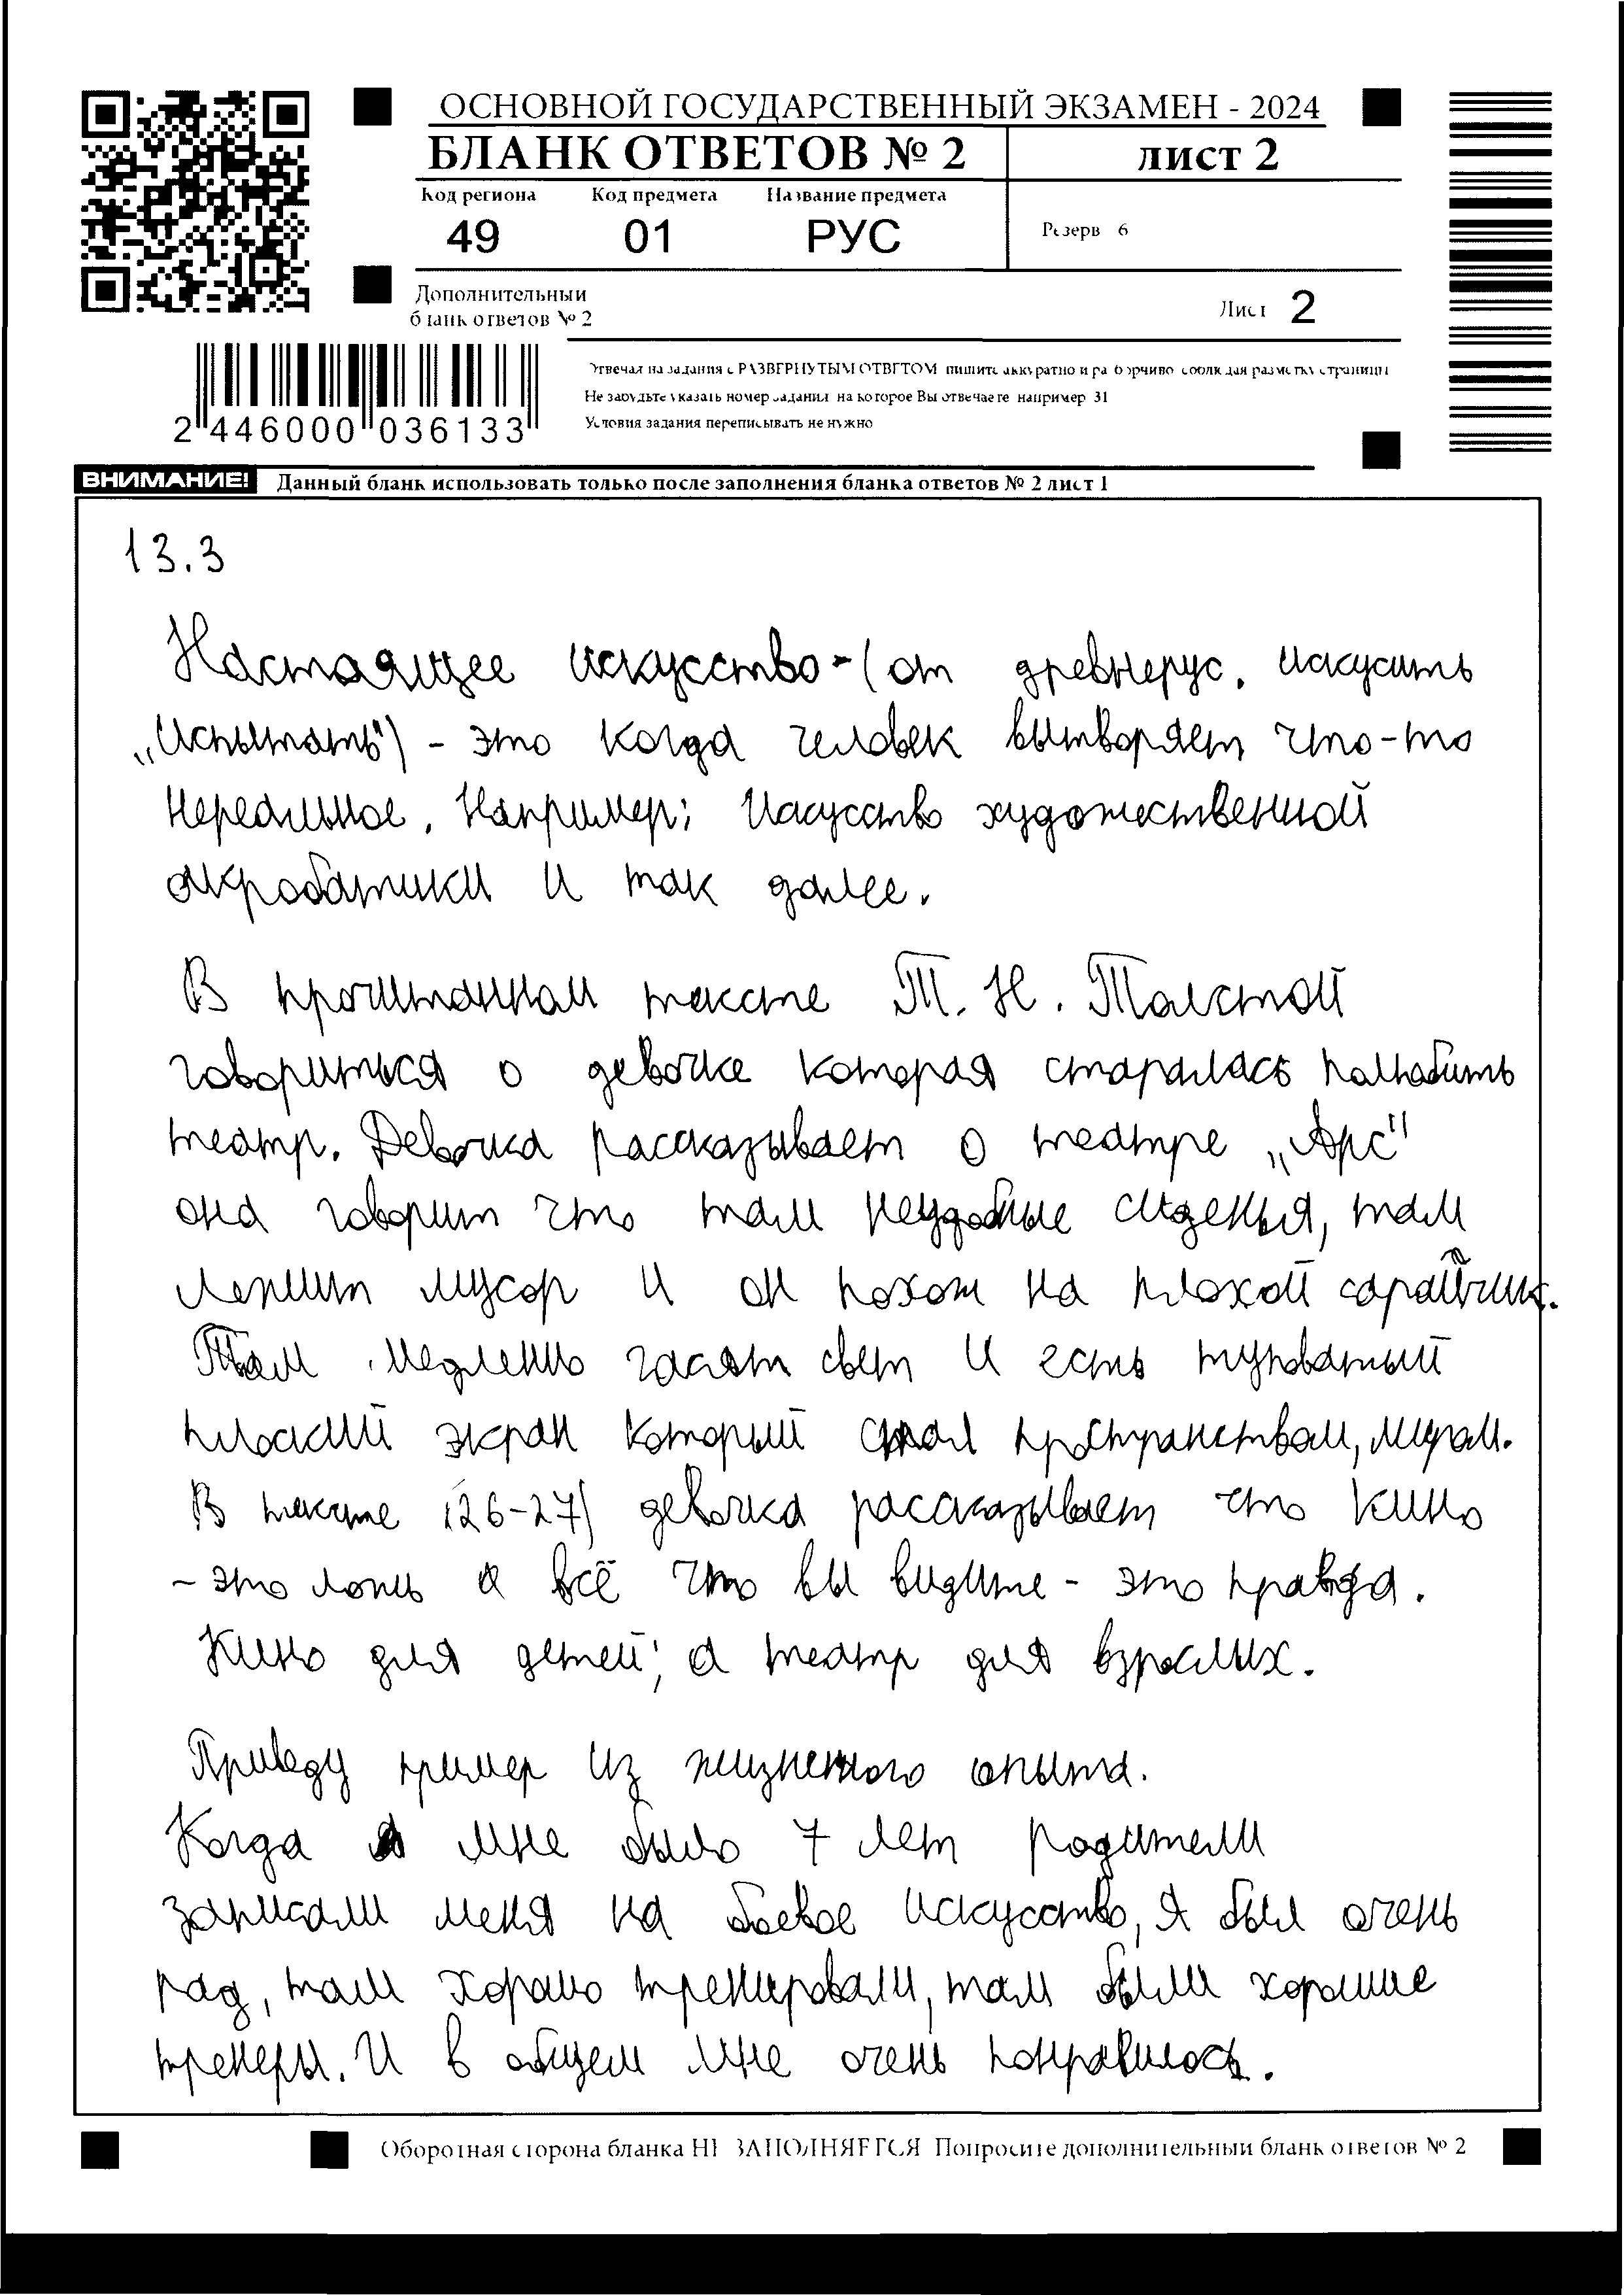 ОСНОВНОЙ ГОСУДАРСТВЕННЫЙ ЭКЗАМЕН - 2024
БЛАНК ОТВЕТОВ № 2
ЛИСТ 2
Код региона Код предмета Название предмета
49 01 РУС
Резерв 6
Дополнительный
бланк ответов № 2
Лист 2
Отвечая на задания с РАЗВЕРНУТЫМ ОТВЕТОМ пишите аккуратно и разборчиво соблюдая разметку страницы
Не забудьте указать номер задания на которое Вы отвечаете например 31
Условия задания переписывать не нужно
2 446000 036133
ВНИМАНИЕ! Данный бланк использовать только после заполнения бланка ответов № 2 лист 1
13.3
Настоящее искусство - (от древнерус. искусить
„Испытать") - это когда человек вытворяет что-то
нереальное. Например: Искуство художественной
акробатики и так далее.
В прочитанном тексте Т. Н. Толстой
говориться о девочке которая старалась полюбить
театр. Девочка рассказывает о театре „Арс"
она говорит что там неудобные сиденья, там
лежит мусор и он похож на плохой сарайчик.
Там медленно гаснет свет и есть туповатый
плоский экран который стал пространством, миром.
В тексте (26-27) девочка рассказывает что кино
- это ложь а всё что вы видите - это правда.
Кино для детей, а театр для взрослых.
Приведу пример из жизненого опыта.
Когда мне было 7 лет родители
записали меня на боевое искусство, я был очень
рад, там хорошо тренировали, там были хорошие
тренеры. И в общем мне очень понравилось.
Оборотная сторона бланка НЕ ЗАПОЛНЯЕТСЯ Попросите дополнительный бланк ответов № 2